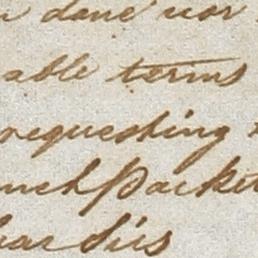 done nor
able terms
requesting
nch Packet
har Sirs